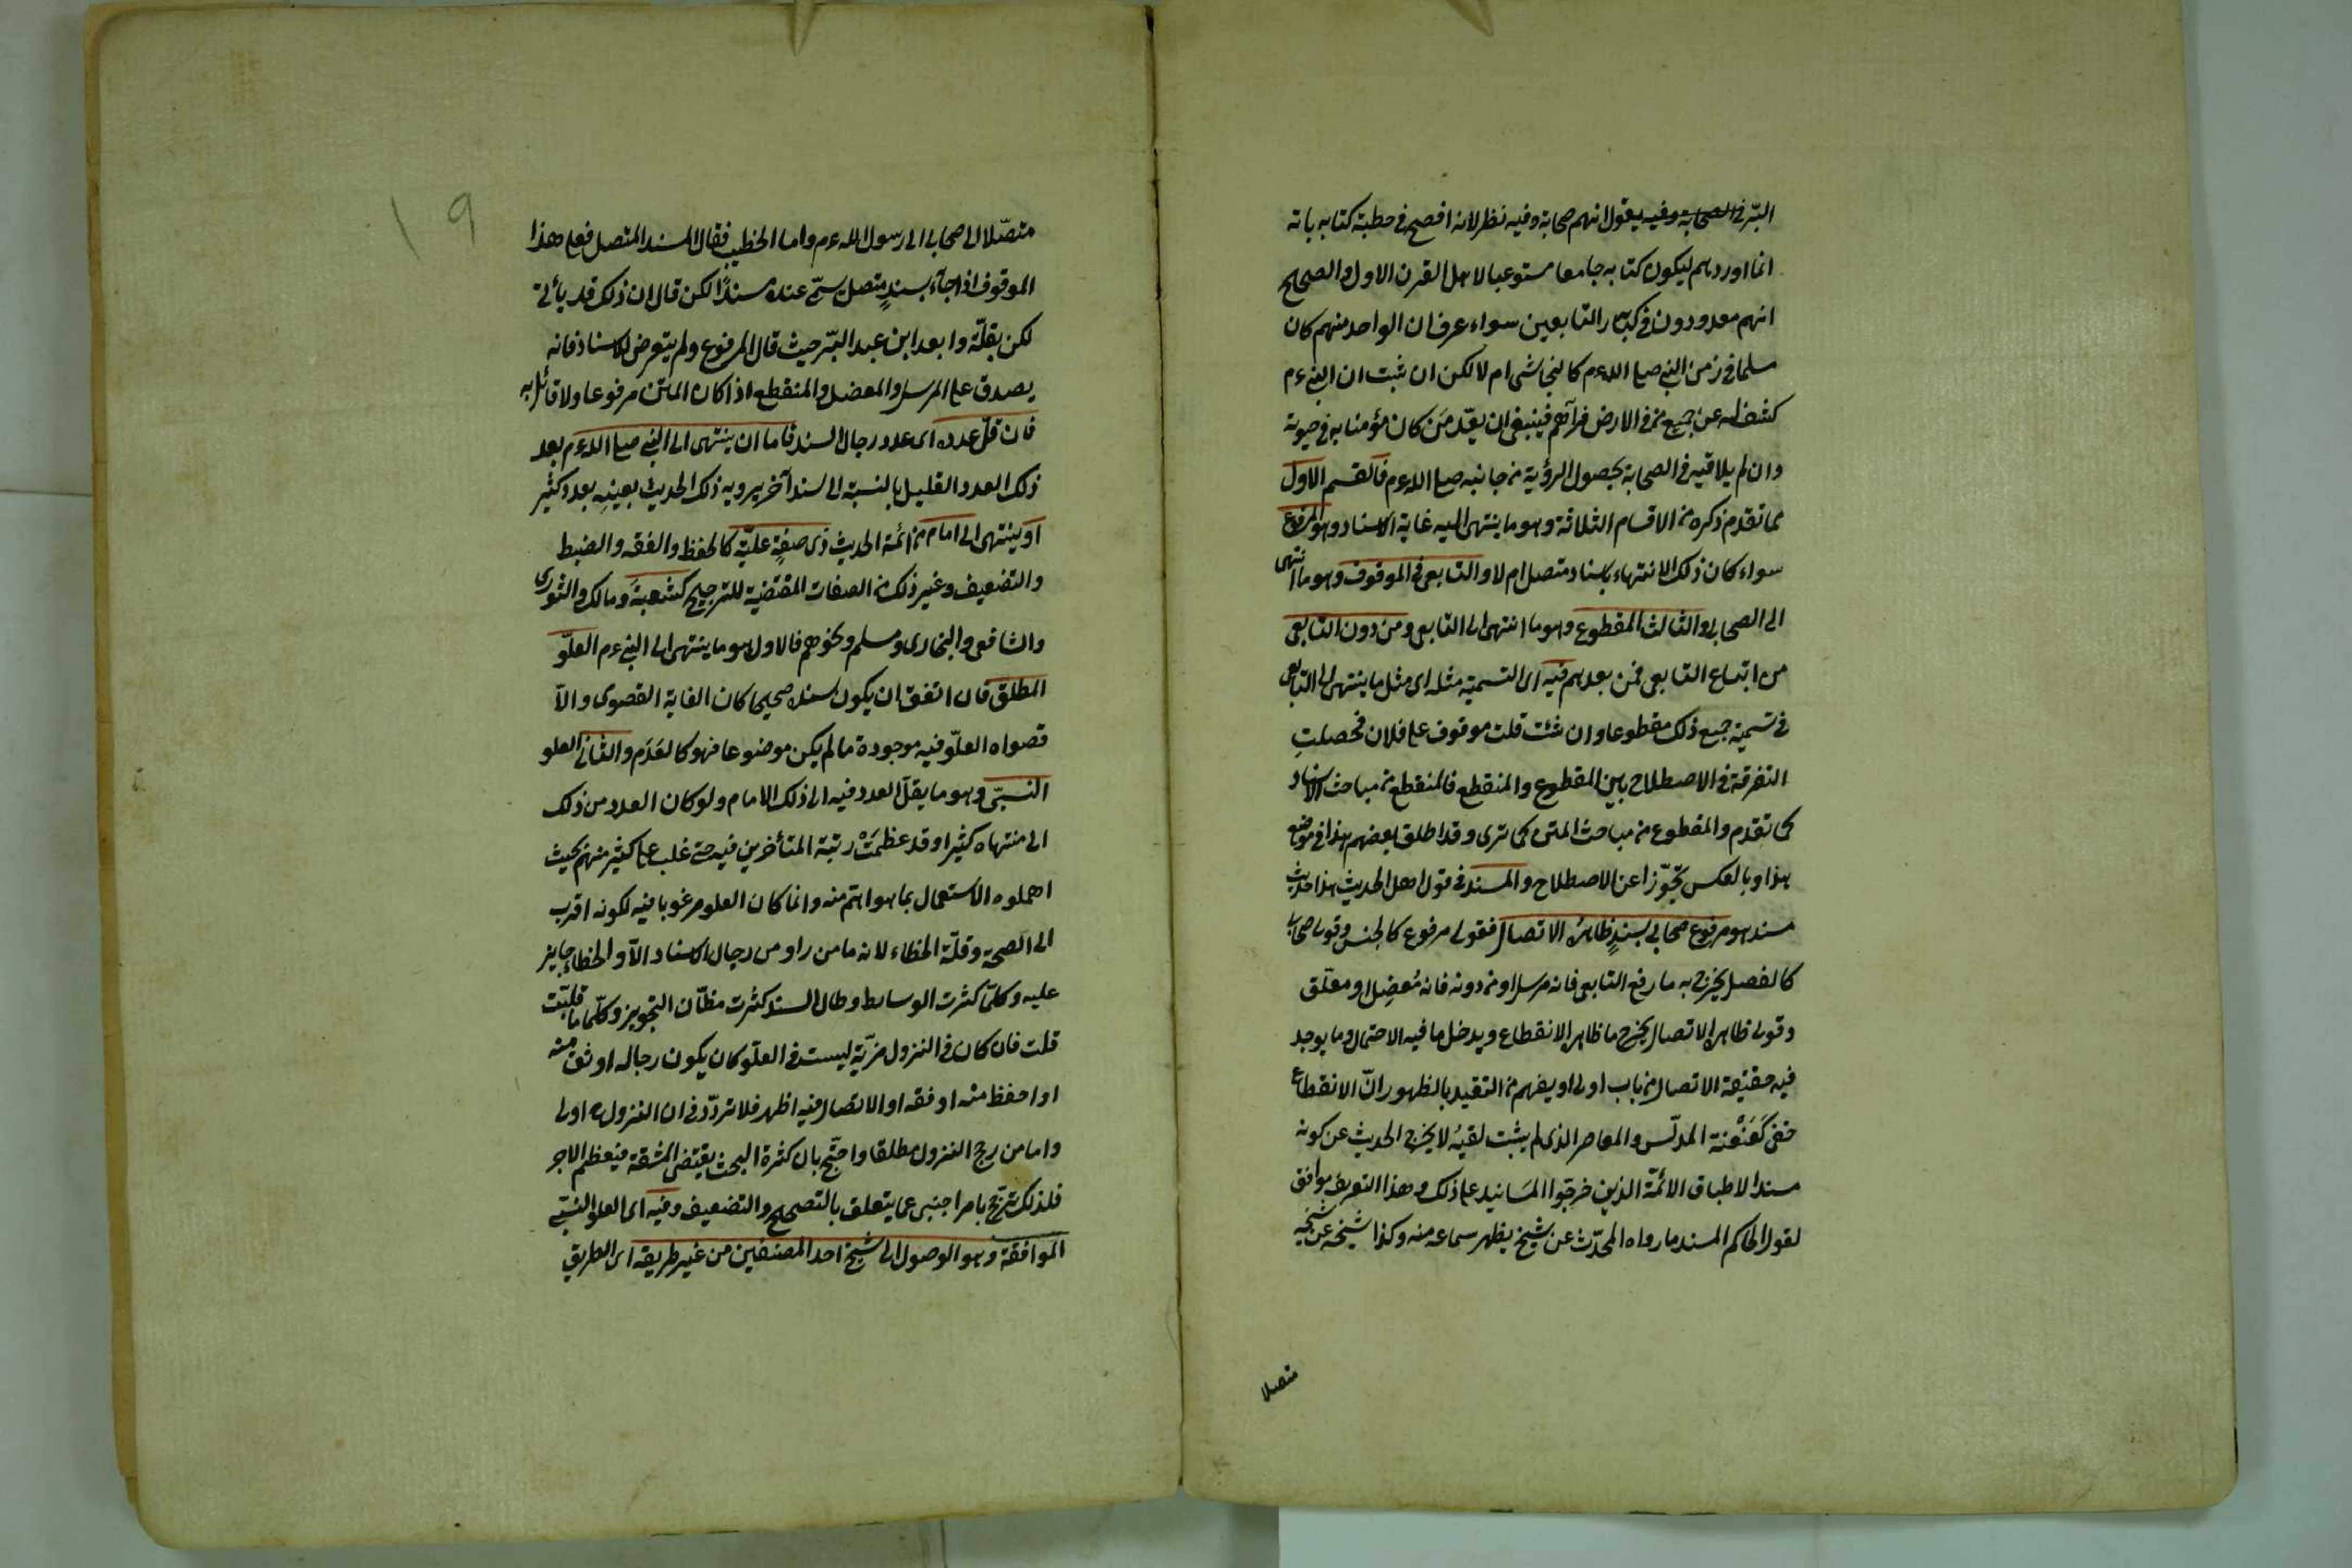 البرّ في الصحابة وفيه يقول انهم صحابة وفيه نظر لانه افصح في خطبة كتابه بانه
انما اوردهم ليكون كتابه جامعا مستوعبا لاهل القرن الاول والصحيح
انهم معدودون في كبار التابعين سواء عرف ان الواحد منهم كان
مسلما في زمن النبي صلى الله ءم كالنجاشي ام لا لكن ان ثبت ان النبي ءم
كشف له عن جميع من في الارض فرآهم فينبغي ان يعدّ من كان مؤمنا به في حيوته
وان لم يلاقيه في الصحابة بحصول الرؤية من جانبه صلى الله ءم فالقسم الاول
مما تقدم ذكره من الاقسام الثلاثة وهو ما ينتهى اليه غاية الاسناد وهو المرفوع
سواء كان ذلك الانتهاء باسناد متصل ام لا والتابعى في الموقوف وهو ما انتهى
الى الصحابي والثالث المقطوع وهو ما انتهى الى التابعى ومن دون التابعى
من اتباع التابعى فمن بعدهم فيه اى التسمية مثله اى مثل ما ينتهى الى التابعى
في تسمية جميع ذلك مقطوعا وان شئت قلت موقوف على فلان فحصلتِ
التفرقة في الاصطلاح بين المقطوع والمنقطع فالمنقطع من مباحث الاسناد
كما تقدم والمقطوع من مباحث المتن كما ترى وقد اطلق بعضهم هذا في موضع
هذا وبالعكس تجوّزا عن الاصطلاح والمسند في قول اهل الحديث هذا حديث
مسند هو مرفوع صحابي بسندٍ ظاهرُه الاتصال فقولى مرفوع كالجنس وقولى صحابي
كالفصل يخرج به ما رفع التابعى فانه مرسل او من دونه فانه مُعضِل او معلّق
وقولى ظاهره الاتصال يخرج ما ظاهره الانقطاع ويدخل ما فيه الاحتمال وما يوجد
فيه حقيقة الاتصال من باب اولى او يفهم من التقيد بالظهور انّ الانقطاع
خفى كَعَنْعَنة المدلّس والمعاصر الذى لم يثبت لقيُه لا يخرج الحديث عن كونه
مسندا لاطباق الائمّة الذين خرجّوا المسَانيد على ذلك وهذا التعريف موافق
لقول الحاكم المسند ما رواه المحدّث عن شيخ يظهر سماعه منه وكذا شيخه عن شيخه
متصلا
١٩
متصّلا الى صحابي الى رسول الله ءم واما الخطيب فقال المسند المتصل فعلى هذا
الموقوف اذا جآء بسندٍ متصل يسمّى عنده مسندًا لكن قال ان ذلك قد يأتى
لكن بقلّة وابعد ابن عبد البّر حيث قال المرفوع ولم يتعرض للاسناد فانه
يصدق على المرسل والمعضل والمنقطع اذا كان المتن مرفوعا ولا قائل به
فان قلّ عدده اى عدد رجال السند فاما ان ينتهى الى النبي صلى الله ءم بعد
ذلك العدد القليل بالنسبة الى سند آخر يرويه ذلك الحديث بعينِه بعدد كثير
او ينتهى الى امام من ائمة الحديث ذى صفةٍ عليّة كالحفظ والفقه والضبط
والتضعيف وغير ذلك من الصفات المقتضية للترجيح كشعبةَ ومالك والثورى
والشافعى والبخارى ومسلم ونحوهم فالاول هو ما ينتهى الى النبي ءم العلوّ
المطلق فان اتفق ان يكون سنده صحيحا كان الغاية القصوى والّا
فصواه العلوّ فيه موجودة ما لم يكن موضوعا فهو كالعَدَم والثانى العلو
النسبّى وهو ما يقلّ العدد فيه الى ذلك الامام ولو كان العدد من ذلك
الى منتهاه كثيرا وقد عظمَتْ رتبة المتأخرين فيه حتى غلب على كثير منهم بحيث
اهملوه الاستعمال بما هو اهتم منه وانما كان العلو مرغوبا فيه لكونه اقرب
الى الصحة وقلّة الخطاء لانه ما من راو من رجال الاسناد الّا والخطاء جايز
عليه وكلمّا كثرت الوسايط وطال السند كثرت مظّان التجويز وكلّما ما قلّت
قلت فان كان في النزول مزيّة ليست في العلّو كان يكون رجاله اوثق منه
او احفظ منه او فقه او الاتصال فيه اظهر فلا تردّد في ان النزول ح اولى
واما من رجح النزول مطلقا واحتّج بان كثرة البحث يقتضى المشقة فيعظم الاجر
فلذلك ترجّح بامر اجنبى عما يتعلق بالتصحيح والتضعيف وفيه اى العلو النسبّى
الموافقة وهو الوصول الى شيخ احد المصنفين من غير طريقه اى الطريق